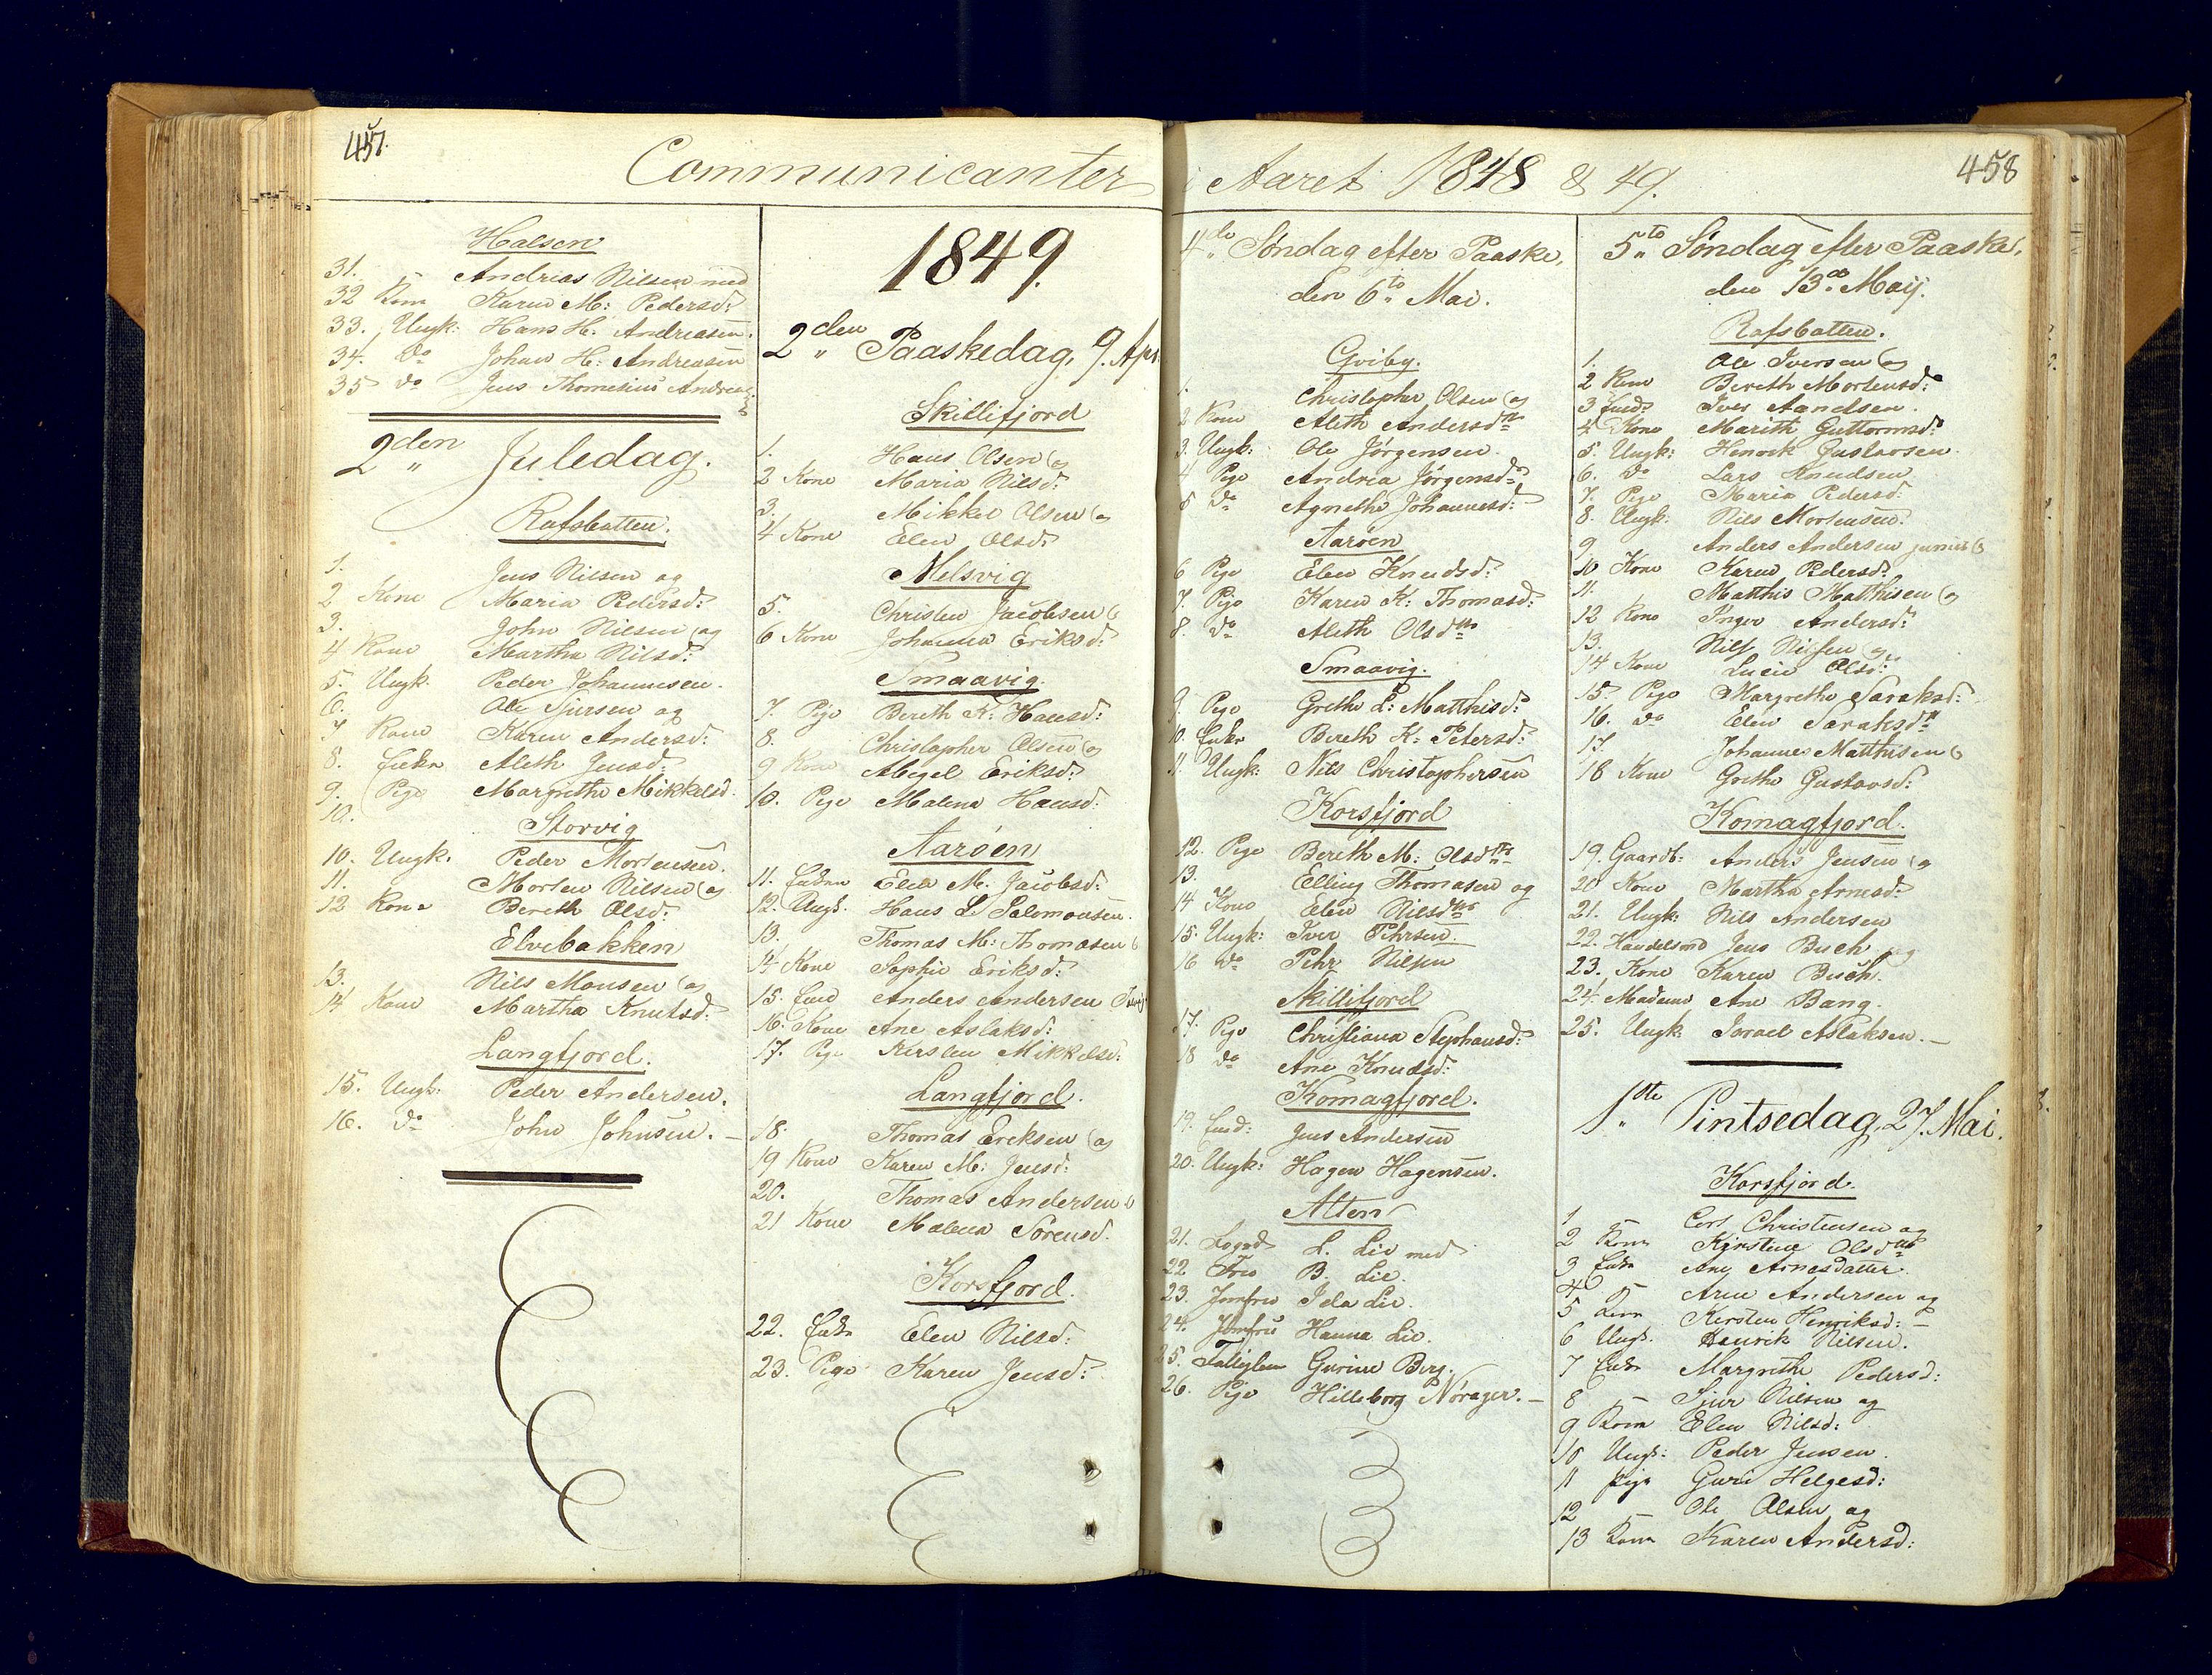 457.
Communicanter
Halsen
31. Andrias Nilsen med
32 Kone Karen M: Pedersd:
33. Ungk: Hans H: Andreasen.
34. do Johan H: Andreasen
35 do Jens Thomesius Andreas
2den Juledag.
Rafsbatten.
1. Jens Nilsen og
2 Kone Maria Pedersd:
3. John Nilsen og
4 Kone Martha Nilsd:
5. Ungk. Peder Johannesen.
6. Ole Siursen og
7 Kone Karen Andersd:
8. Enke Aleth Jensd:
9. Pige Margrethe Mikkelsd:
10.
Storvig
10. Ungk. Peder Mortensen.
11. Morten Nilsen og
12 Kone Bereth Olsd:
Elvebakken
13. Nils Monsen og
14 Kone Martha Knutsd:
Langfjord.
15. Ungk: Peder Andersen.
16. do John Johnsen.
1849.
2den Paaskedag, 9. Apr.
Skillifjord
1. Hans Olsen og
2 Kone Maria Nilsd:
3. Mikkel Olsen og
4 Kone Elen Olsd:
Melsvig
5. Christen Jacobsen
6 Kone Johanna Eriksd:
Smaavig.
7. Pige Bereth K: Hansd:
8. Christopher Olsen og
9 Kone Abigel Eriksd:
10. Pige Malena Hansd:
Aarøen
11. Enken Elen M. Jacobsd:
12. Ungk. Hans L. Salomonsen.
13. Thomas M: Thomasen
14 Kone Sophie Eriksd:
15. Enkd Anders Andersen
16. Kone Ane Aslaksd:
17. Pige Kirsten Mikkelsd:
Langfjord.
18. Thomas Eriksen og
19 Kone Karen M: Jensd:
20. Thomas Andersen
21 Kone Malena Sørensd.
Korsfjord.
22. Enke Elen Nilsd:
23. Pige Karen Jensd:
458
i Aaret 1848 & 49.
4de Søndag efter Paaske,
den 6te Mai.
Qviby.
1. Christopher Olsen og
2 Kone Aleth Andersdtr
3. Ungk: Ole Jørgensen
4 Pige Andrea Jørgensdr
5 do Agnethe Johannesd:
Aarøen
6 Pige Elen Knudsd:
7. Pige Karen K: Thomasd:
8. do Aleth Olsdtr
Smaavig.
9. Pige Grethe L: Matthisd:
10. Enke Bereth K: Petersd:
11. Ungk: Nils Christophersen
Korsfjord
12. Pige Bereth M: Olsdtr
13. Elling Thomasen og
14 Kone Elen Nilsdtr
15. Ungk: Iver Pehrsen.
16 do Pehr Nilsen
Skillifjord
17. Pige Christiana Stephansd:
18 do Ane Knudsd:
Komagfjord.
19. Enkd: Jens Andersen
20. Ungk: Hagen Hagensen.
Alten
21. Foged L. Lie med
22 Frue B. Lie.
23. Jomfru Ida Lie.
24. Jomfru Hanna Lie.
25. Gurine Berg.
26. Pige Hilleborg Nørager.
5te Søndag efter Paaske,
den 13de Maij.
Rafsbatten.
1. Ole Iversen og
2 Kone Bereth Mortensd:
3 Enkd: Iver Aandsen.
4 Kone Marith Guttormsd:
5. Ungk: Henrik Gustavsen
6. do Lars Knudsen
7. Pige Maria Pedersd:
8. Ungk: Nils Mortensen.
9 Anders Andersen junior
10 Kone Karen Pedersd:
11. Matthis Matthisen og
12 Kone Inger Andersd:
13. Nils Nilsen og
14 Kone Lucie Olsd:
15 Pige Margrethe Saraksd:
16. do Elen Saraksdtr
17. Johannes Matthisen
18 Kone Grethe Gustavsd:
Komagfjord.
19. Gaardb: Anders Jensen og
20 Kone Martha Arnesd:
21. Ungk: Nils Andersen
22. Handelsmd Jens Buch og
23. Kone Karen Buch.
24. Madame Ane Bang.
25. Ungk: Israel Aslaksen.
1ste Pintsedag, 27. Mai.
Korsfjord.
1 Carl Christensen og
2 Kone Kirstine Olsdtr
3 Enke Ane Arnesdatter
4 Arne Andersen og
5 Kone Kersten Henriksd:
6 Ungk. Henrik Nilsen.
7 Enke Margrethe Pedersd:
8 Siur Nilsen og
9 Kone Elen Nilsd:
10 Ungk: Peder Jensen.
11 Pige Guru Helgesd:
12 Ole Olsen og
13 Kone Karen Andersd: